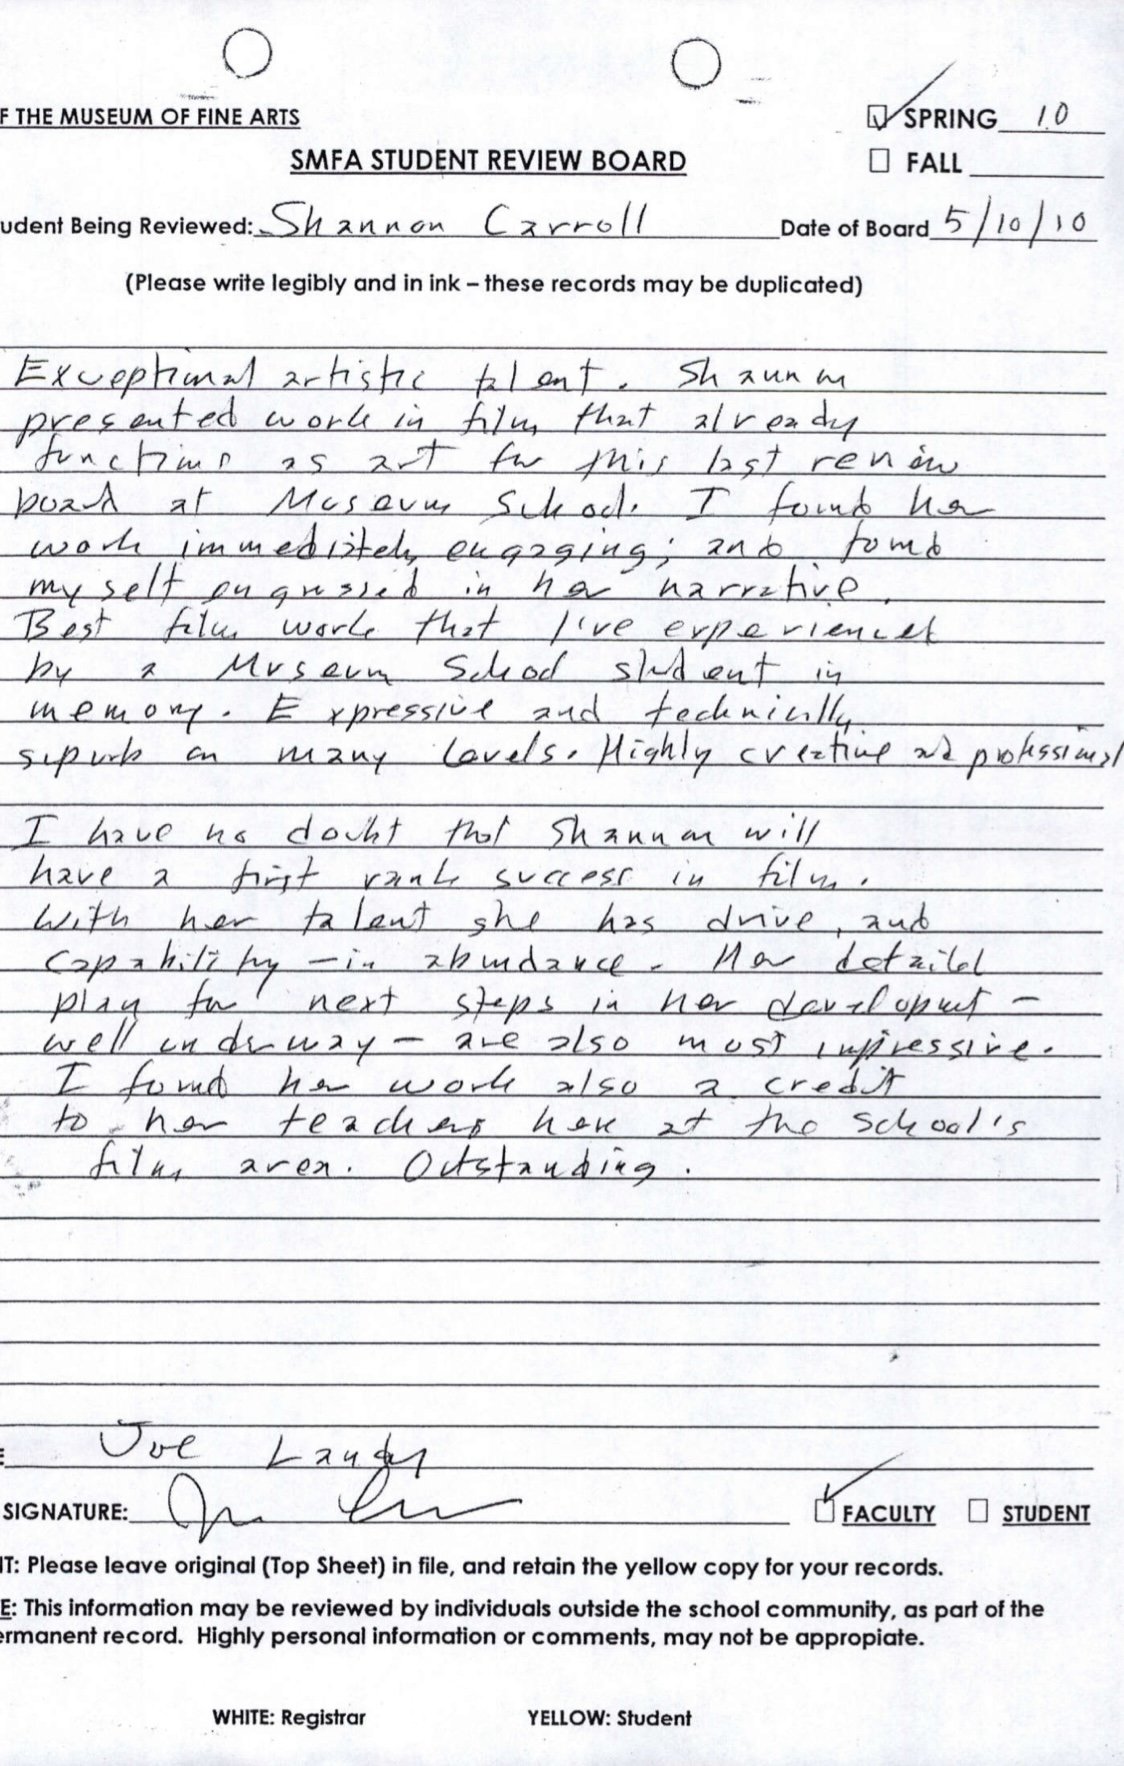 F THE MUSEUM OF FINE ARTS
☑ SPRING 10
SMFA STUDENT REVIEW BOARD
☐ FALL
udent Being Reviewed: Shannon Carroll Date of Board 5/10/10
(Please write legibly and in ink – these records may be duplicated)
Exceptional artistic talent. Shannon
presented work in film that already
functions as art for this last review
board at Museum School. I found her
work immediately engaging; and found
myself engrossed in her narrative.
Best film work that I've experienced
by a Museum School student in
memory. Expressive and technically
superb on many levels. Highly creative and professional
I have no doubt that Shannon will
have a first rank success in film.
With her talent she has drive, and
capability – in abundance. Her detailed
plan for next steps in her development –
well underway – are also most impressive.
I found her work also a credit
to her teachers here at the school's
film area. Outstanding.
E Joe Landry
SIGNATURE: ☑ FACULTY ☐ STUDENT
NT: Please leave original (Top Sheet) in file, and retain the yellow copy for your records.
E: This information may be reviewed by individuals outside the school community, as part of the
ermanent record. Highly personal information or comments, may not be appropiate.
WHITE: Registrar YELLOW: Student